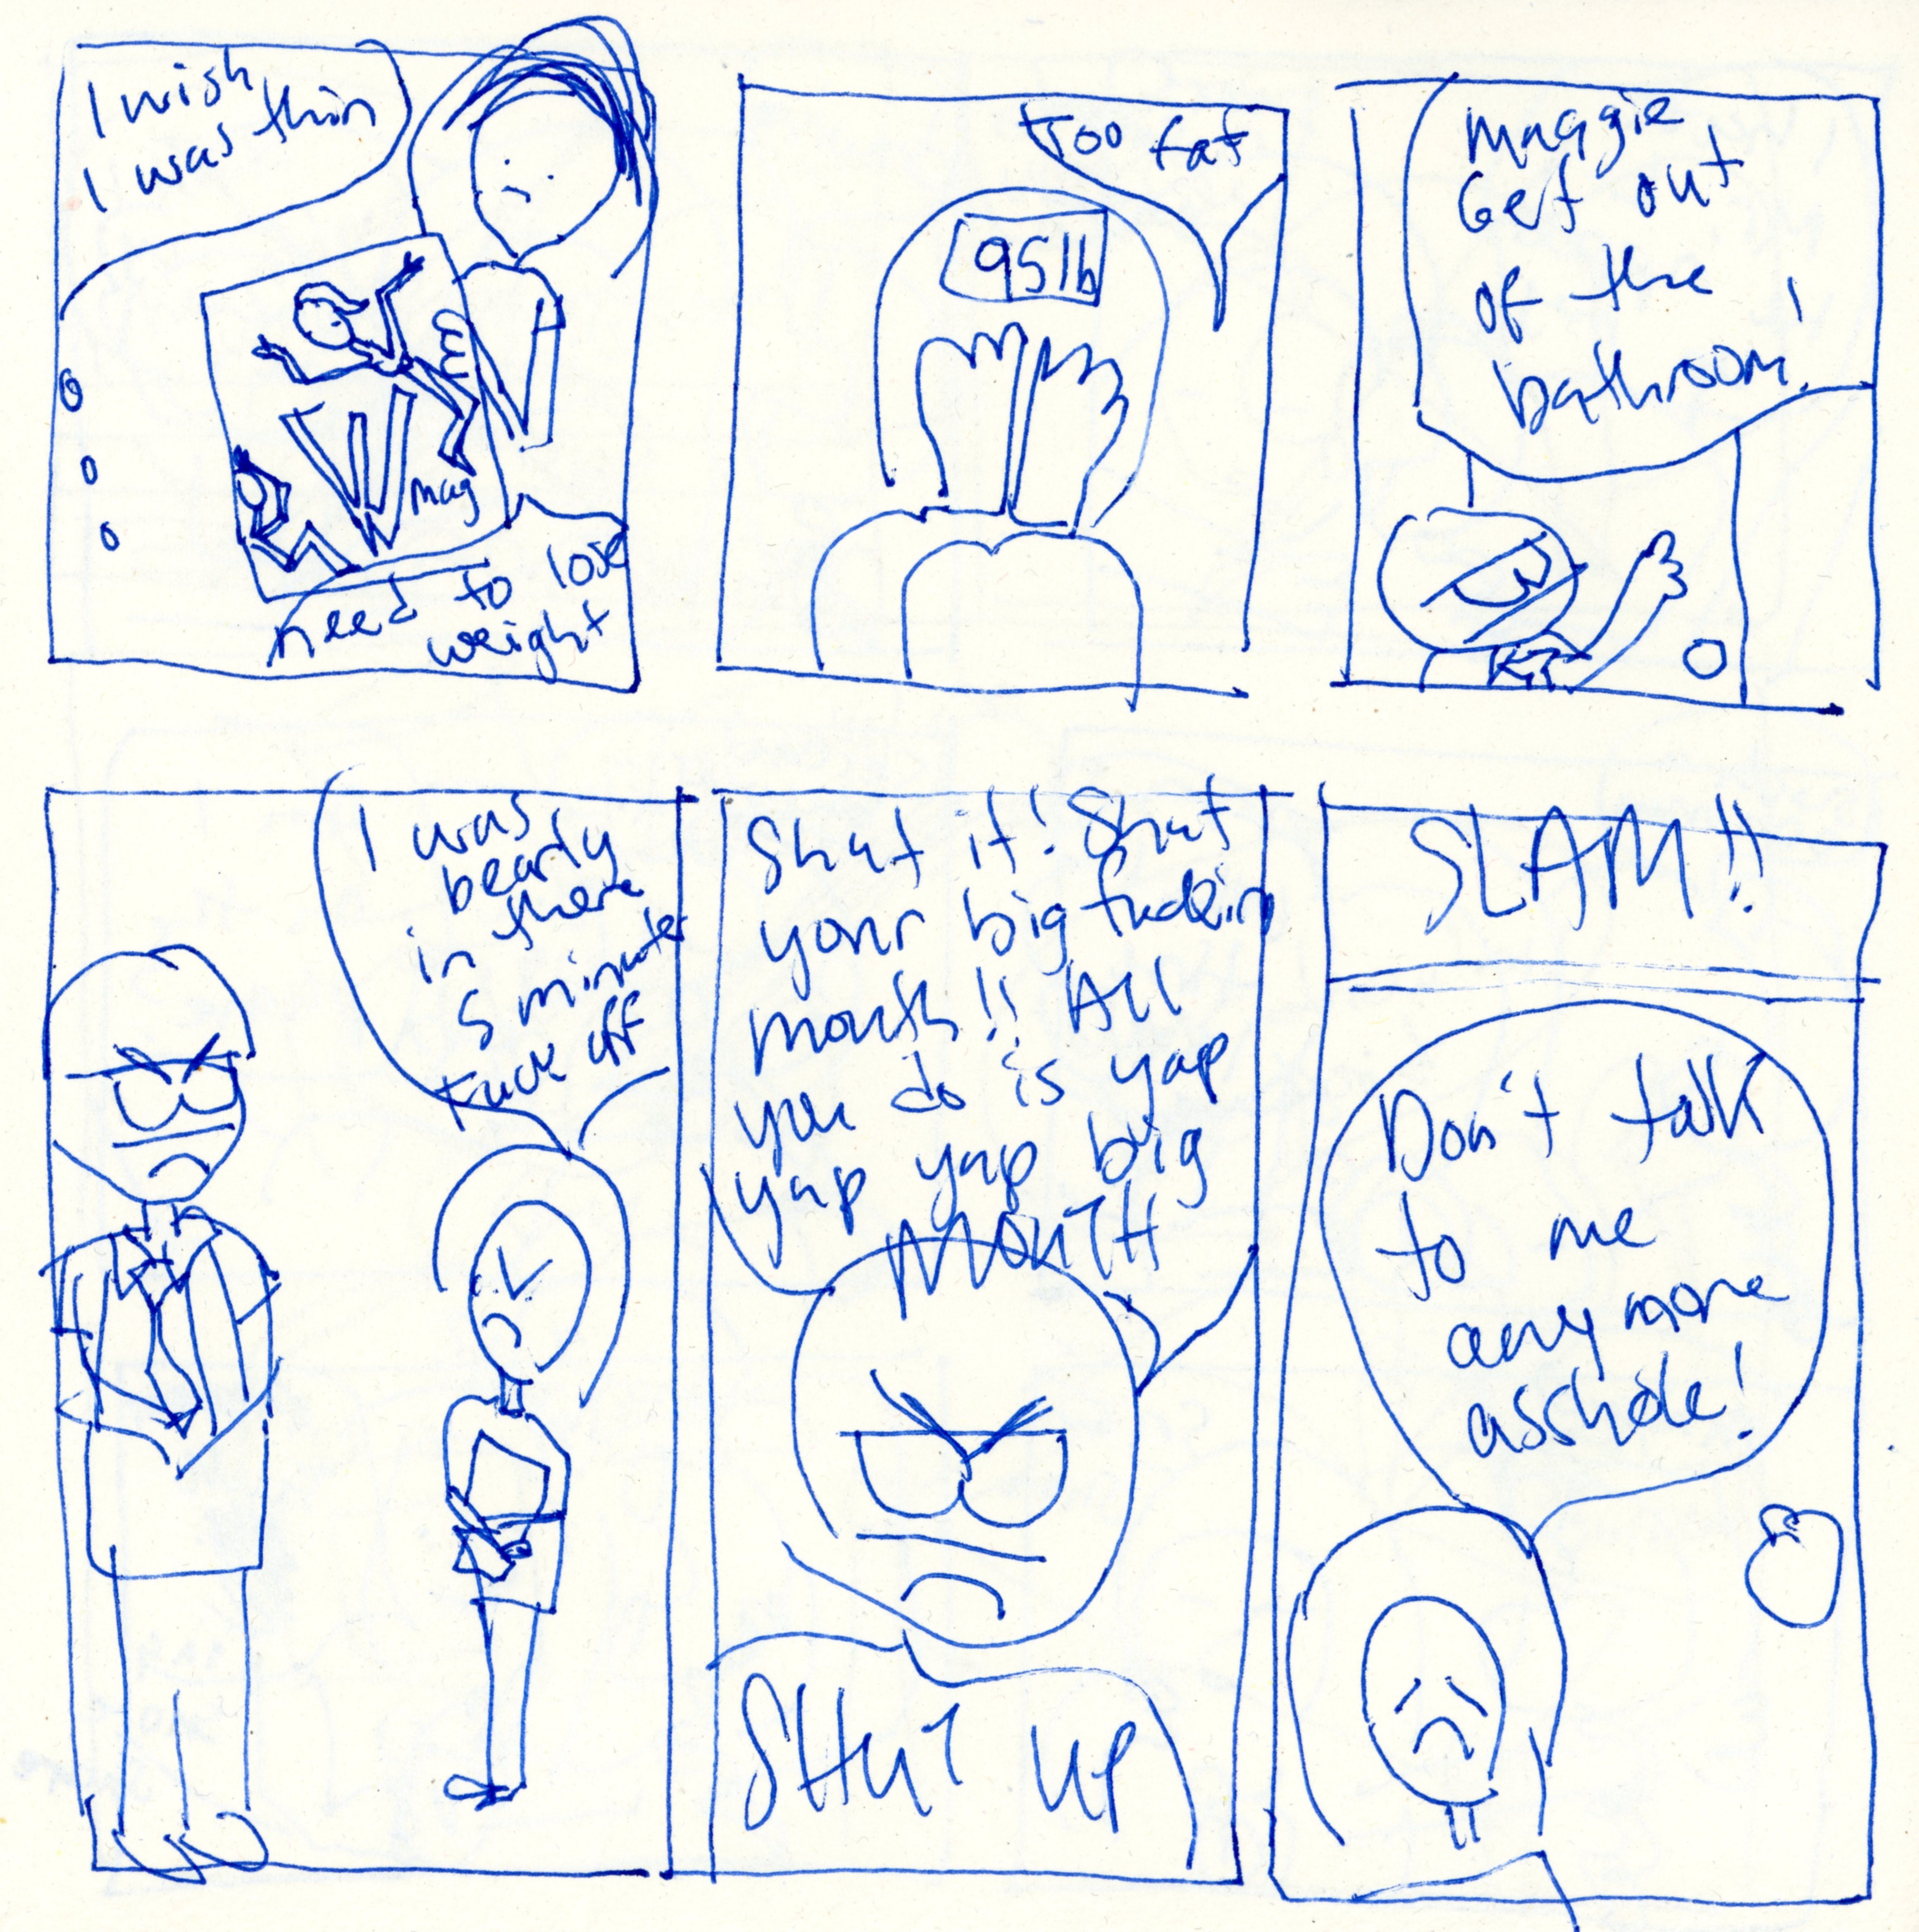 I wish
I was thin
W
mag
need to lose
weight
too fat
95lb
Maggie
Get out
of the
bathroom!
I was
bearly
in there
5 minutes
fuck off
Shut it! Shut
your big fuckin
mouth!! All
you do is yap
yap yap big
MOUTH
SHUT UP
SLAM!!
Don't talk
to me
anymore
asshole!